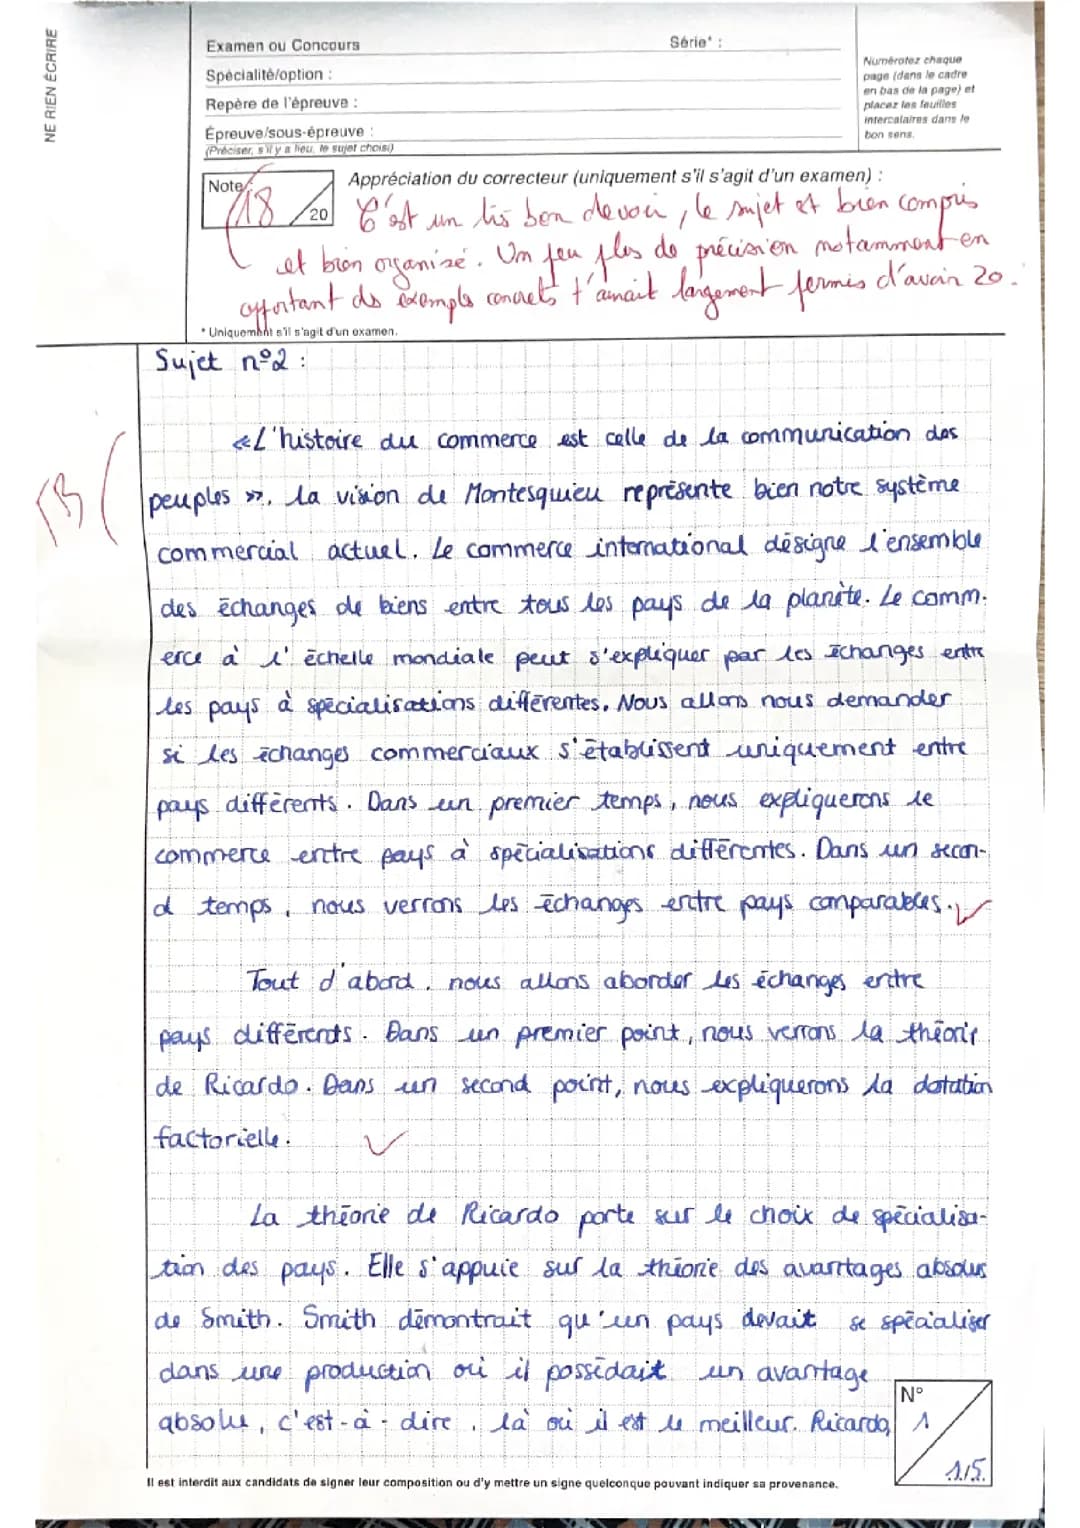 NE RIEN ÉCRIRE
Examen ou Concours Série* :
Spécialité/option :
Repère de l'épreuve :
Épreuve/sous-épreuve :
(Préciser, s'il y a lieu, le sujet choisi)
Numérotez chaque
page (dans le cadre
en bas de la page) et
placez les feuilles
intercalaires dans le
bon sens.
Note : 18 / 20
Appréciation du correcteur (uniquement s'il s'agit d'un examen) :
C'est un très bon devoir, le sujet et bien compris
et bien organisé. Un peu plus de précision notamment en
apportant ds exempls concrets t'aurait largement permis d'avoir 20.
* Uniquement s'il s'agit d'un examen.
Sujet n°2 :
TB
«L'histoire du commerce est celle de la communication des
peuples », la vision de Montesquieu représente bien notre système
commercial actuel. Le commerce international désigne l'ensemble
des échanges de biens entre tous les pays de la planète. Le comm-
erce à l'échelle mondiale peut s'expliquer par les échanges entre
les pays à spécialisations différentes. Nous allons nous demander
si les échanges commerciaux s'établissent uniquement entre
pays différents. Dans un premier temps, nous expliquerons le
commerce entre pays à spécialisations différentes. Dans un secon-
d temps, nous verrons les échanges entre pays comparables.
Tout d'abord, nous allons aborder les échanges entre
pays différents. Dans un premier point, nous verrons la théorie
de Ricardo. Dans un second point, nous expliquerons la dotation
factorielle.
La théorie de Ricardo porte sur le choix de spécialisa-
tion des pays. Elle s'appuie sur la théorie des avantages absolus
de Smith. Smith démontrait qu'un pays devait se spécialiser
dans une production où il possédait un avantage
absolu, c'est-à-dire, là où il est le meilleur. Ricardo,
N°
1
1/5.
Il est interdit aux candidats de signer leur composition ou d'y mettre un signe quelconque pouvant indiquer sa provenance.